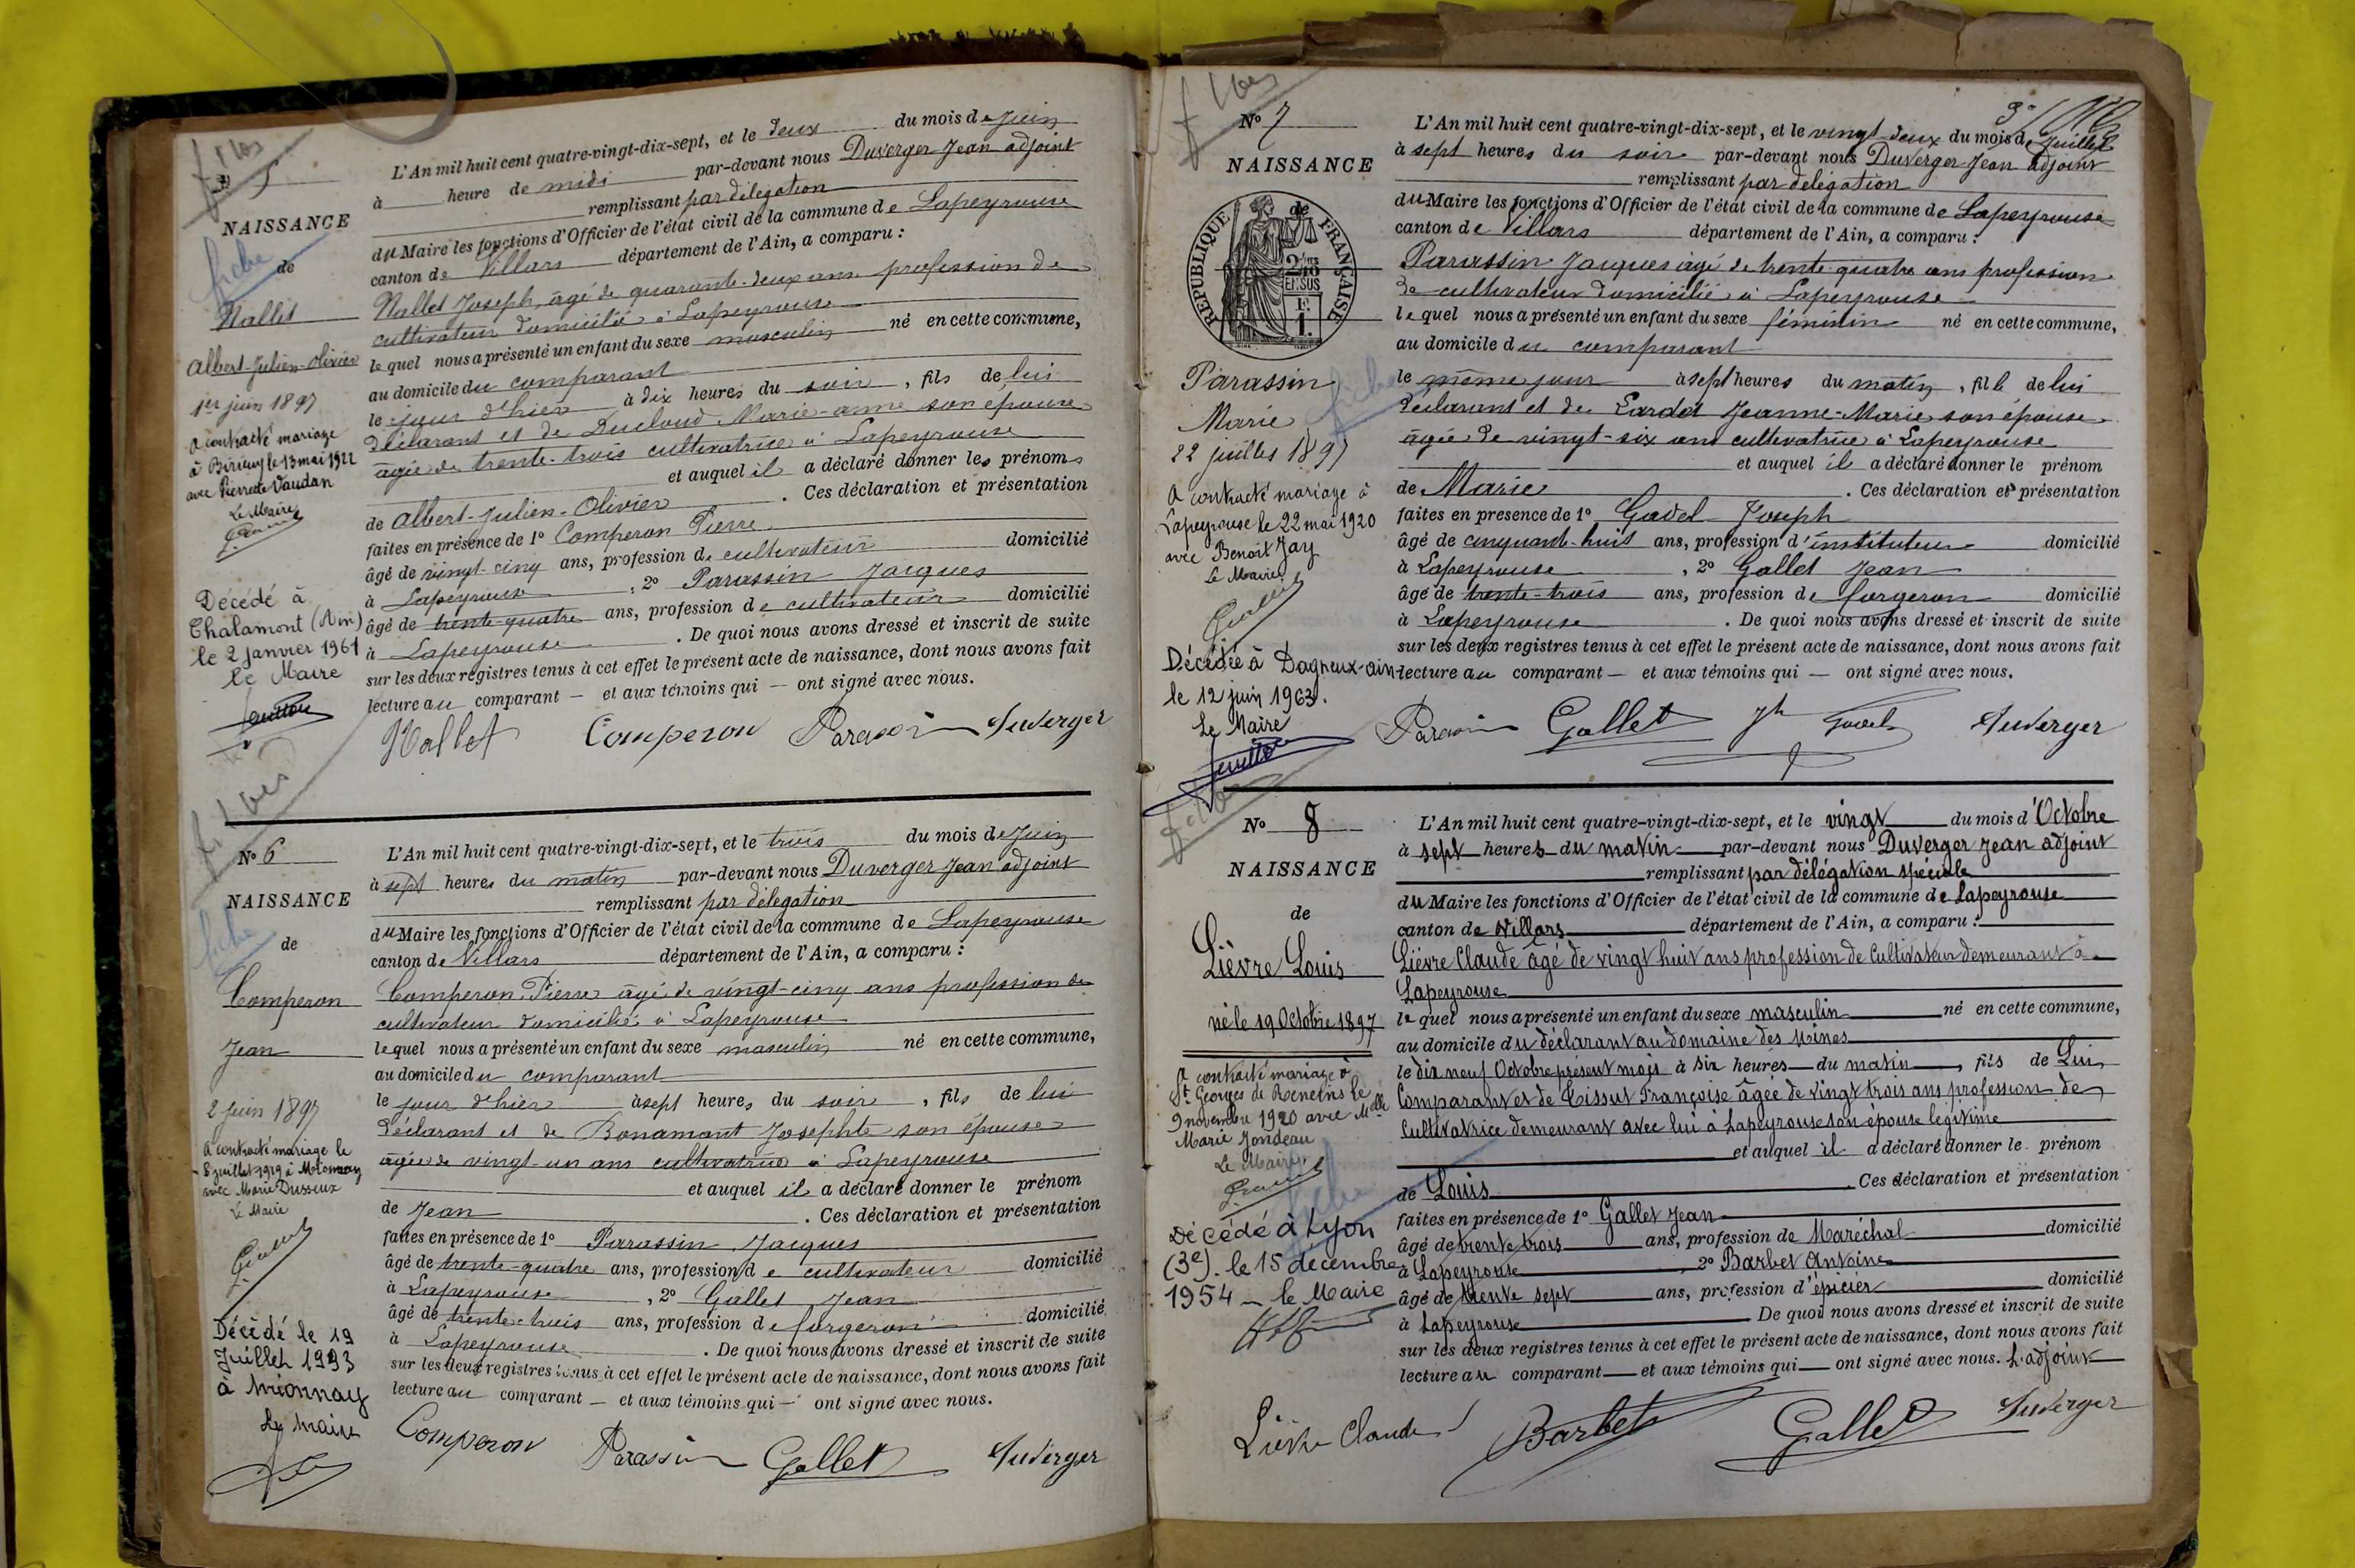 5
NAISSANCE
de
Nallet
Albert-Julien-Olivier
1er juin 1897
A contracté mariage
à Birieux le 13 mai 1922
avec Pierrette Vaudan
Le Maire
Décédé à
Chalamont (Ain)
le 2 janvier 1961
le Maire
L'An mil huit cent quatre-vingt-dix-sept, et le deux du mois de Juin
à heure de midi par-devant nous Duverger Jean adjoint
remplissant par délégation
du Maire les fonctions d'Officier de l'état civil de la commune de Lapeyrouse
canton de Villars département de l'Ain, a comparu :
Nallet Joseph, âgé de quarante-deux ans profession de
cultivateur domicilié à Lapeyrouse
lequel nous a présenté un enfant du sexe masculin né en cette commune,
au domicile du comparant
le jour d'hier à dix heures du soir, fils de lui
déclarant et de Ducloud Marie-anne son épouse
âgée de trente-trois cultivatrice à Lapeyrouse
et auquel il a déclaré donner les prénoms
de Albert-Julien-Olivier . Ces déclaration et présentation
faites en présence de 1° Comperon Pierre
âgé de vingt-cinq ans, profession de cultivateur domicilié
à Lapeyrouse , 2° Parassin Jacques
âgé de trente-quatre ans, profession de cultivateur domicilié
à Lapeyrouse . De quoi nous avons dressé et inscrit de suite
sur les deux registres tenus à cet effet le présent acte de naissance, dont nous avons fait
lecture au comparant — et aux témoins qui — ont signé avec nous.
Nallet Comperon Parassin Duverger
N° 6
NAISSANCE
fiche
de
Comperon
Jean
2 juin 1897
A contracté mariage le
8 juillet 1919 à Mionnay
avec Marie Dusseux
Le Maire
Décédé le 19
Juillet 1993
à Mionnay
Le Maire
L'An mil huit cent quatre-vingt-dix-sept, et le trois du mois de Juin
à sept heures du matin par-devant nous Duverger Jean adjoint
remplissant par délégation
du Maire les fonctions d'Officier de l'état civil de la commune de Lapeyrouse
canton de Villars département de l'Ain, a comparu :
Comperon Pierre âgé de vingt-cinq ans profession de
cultivateur domicilié à Lapeyrouse
lequel nous a présenté un enfant du sexe masculin né en cette commune,
au domicile du comparant
le jour d'hier à sept heures du soir, fils de lui
déclarant et de Bonamant Josephte son épouse
âgée de vingt-un ans cultivatrice à Lapeyrouse
et auquel il a déclaré donner le prénom
de Jean . Ces déclaration et présentation
faites en présence de 1° Parassin Jacques
âgé de trente-quatre ans, profession de cultivateur domicilié
à Lapeyrouse , 2° Gallet Jean
âgé de trente-trois ans, profession de forgeron domicilié
à Lapeyrouse . De quoi nous avons dressé et inscrit de suite
sur les deux registres tenus à cet effet le présent acte de naissance, dont nous avons fait
lecture au comparant — et aux témoins qui — ont signé avec nous.
Comperon Parassin Gallet Duverger
N° 7
NAISSANCE
de
RÉPUBLIQUE FRANÇAISE
2/10
EN SUS
Parassin
Marie
22 juillet 1897
A contracté mariage à
Lapeyrouse le 22 mai 1920
avec Benoît Jay
Le Maire
Décédée à Dagneux-ain
le 12 juin 1963.
Le Maire
L'An mil huit cent quatre-vingt-dix-sept, et le vingt-deux du mois de Juillet
à sept heures du soir par-devant nous Duverger Jean adjoint
remplissant par délégation
du Maire les fonctions d'Officier de l'état civil de la commune de Lapeyrouse
canton de Villars département de l'Ain, a comparu :
Parassin Jacques âgé de trente-quatre ans profession
de cultivateur domicilié à Lapeyrouse
lequel nous a présenté un enfant du sexe féminin né en cette commune,
au domicile du comparant
le même jour à sept heures du matin, fille de lui
déclarant et de Lardet Jeanne-Marie son épouse
âgée de vingt-six ans cultivatrice à Lapeyrouse
et auquel il a déclaré donner le prénom
de Marie . Ces déclaration et présentation
faites en presence de 1° Gavel Joseph
âgé de cinquante-huit ans, profession d'instituteur domicilié
à Lapeyrouse , 2° Gallet Jean
âgé de trente-trois ans, profession de forgeron domicilié
à Lapeyrouse . De quoi nous avons dressé et inscrit de suite
sur les deux registres tenus à cet effet le présent acte de naissance, dont nous avons fait
lecture au comparant — et aux témoins qui — ont signé avec nous.
Parassin Gallet Jh Gavel Duverger
N° 8
NAISSANCE
de
Lièvre Louis
né le 19 Octobre 1897
A contracté mariage à
St Georges de Reneins le
9 novembre 1920 avec Melle
Marie Jondeau
Le Maire
Décédé à Lyon
(3e). le 15 décembre
1954 — le Maire
L'An mil huit cent quatre-vingt-dix-sept, et le vingt du mois d'Octobre
à sept heures du matin par-devant nous Duverger Jean adjoint
remplissant par délégation spéciale
du Maire les fonctions d'Officier de l'état civil de la commune de Lapeyrouse
canton de Villars département de l'Ain, a comparu :
Lièvre Claude âgé de vingt huit ans profession de Cultivateur demeurant à
Lapeyrouse
lequel nous a présenté un enfant du sexe masculin né en cette commune,
au domicile du déclarant au domaine des Moines
le dix neuf Octobre présent mois à six heures du matin, fils de Lui
Comparant et de Tissut Françoise âgée de vingt trois ans profession de
Cultivatrice demeurant avec lui à Lapeyrouse son épouse legitime
et auquel il a déclaré donner le prénom
de Louis . Ces déclaration et présentation
faites en présence de 1° Gallet Jean
âgé de trente trois ans, profession de Maréchal domicilié
à Lapeyrouse , 2° Barbet Antoine
âgé de trente sept ans, profession d'épicier domicilié
à Lapeyrouse . De quoi nous avons dressé et inscrit de suite
sur les deux registres tenus à cet effet le présent acte de naissance, dont nous avons fait
lecture au comparant — et aux témoins qui — ont signé avec nous. L'adjoint
Lièvre Claude Barbet Gallet Duverger